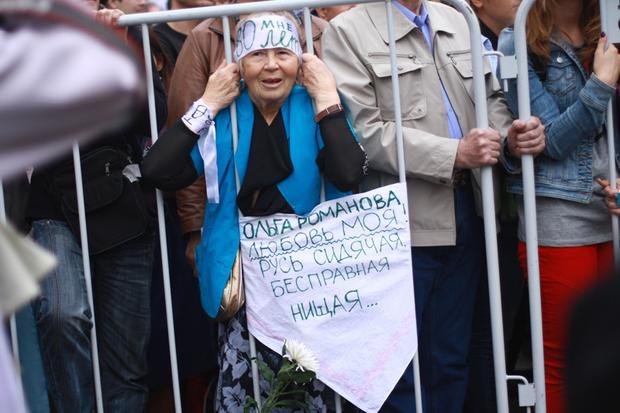 80 МНЕ
ЛЕТ
ОЛЬГА РОМАНОВА,
ЛЮБОВЬ МОЯ!
РУСЬ СИДЯЧАЯ,
БЕСПРАВНАЯ
НИЩАЯ...